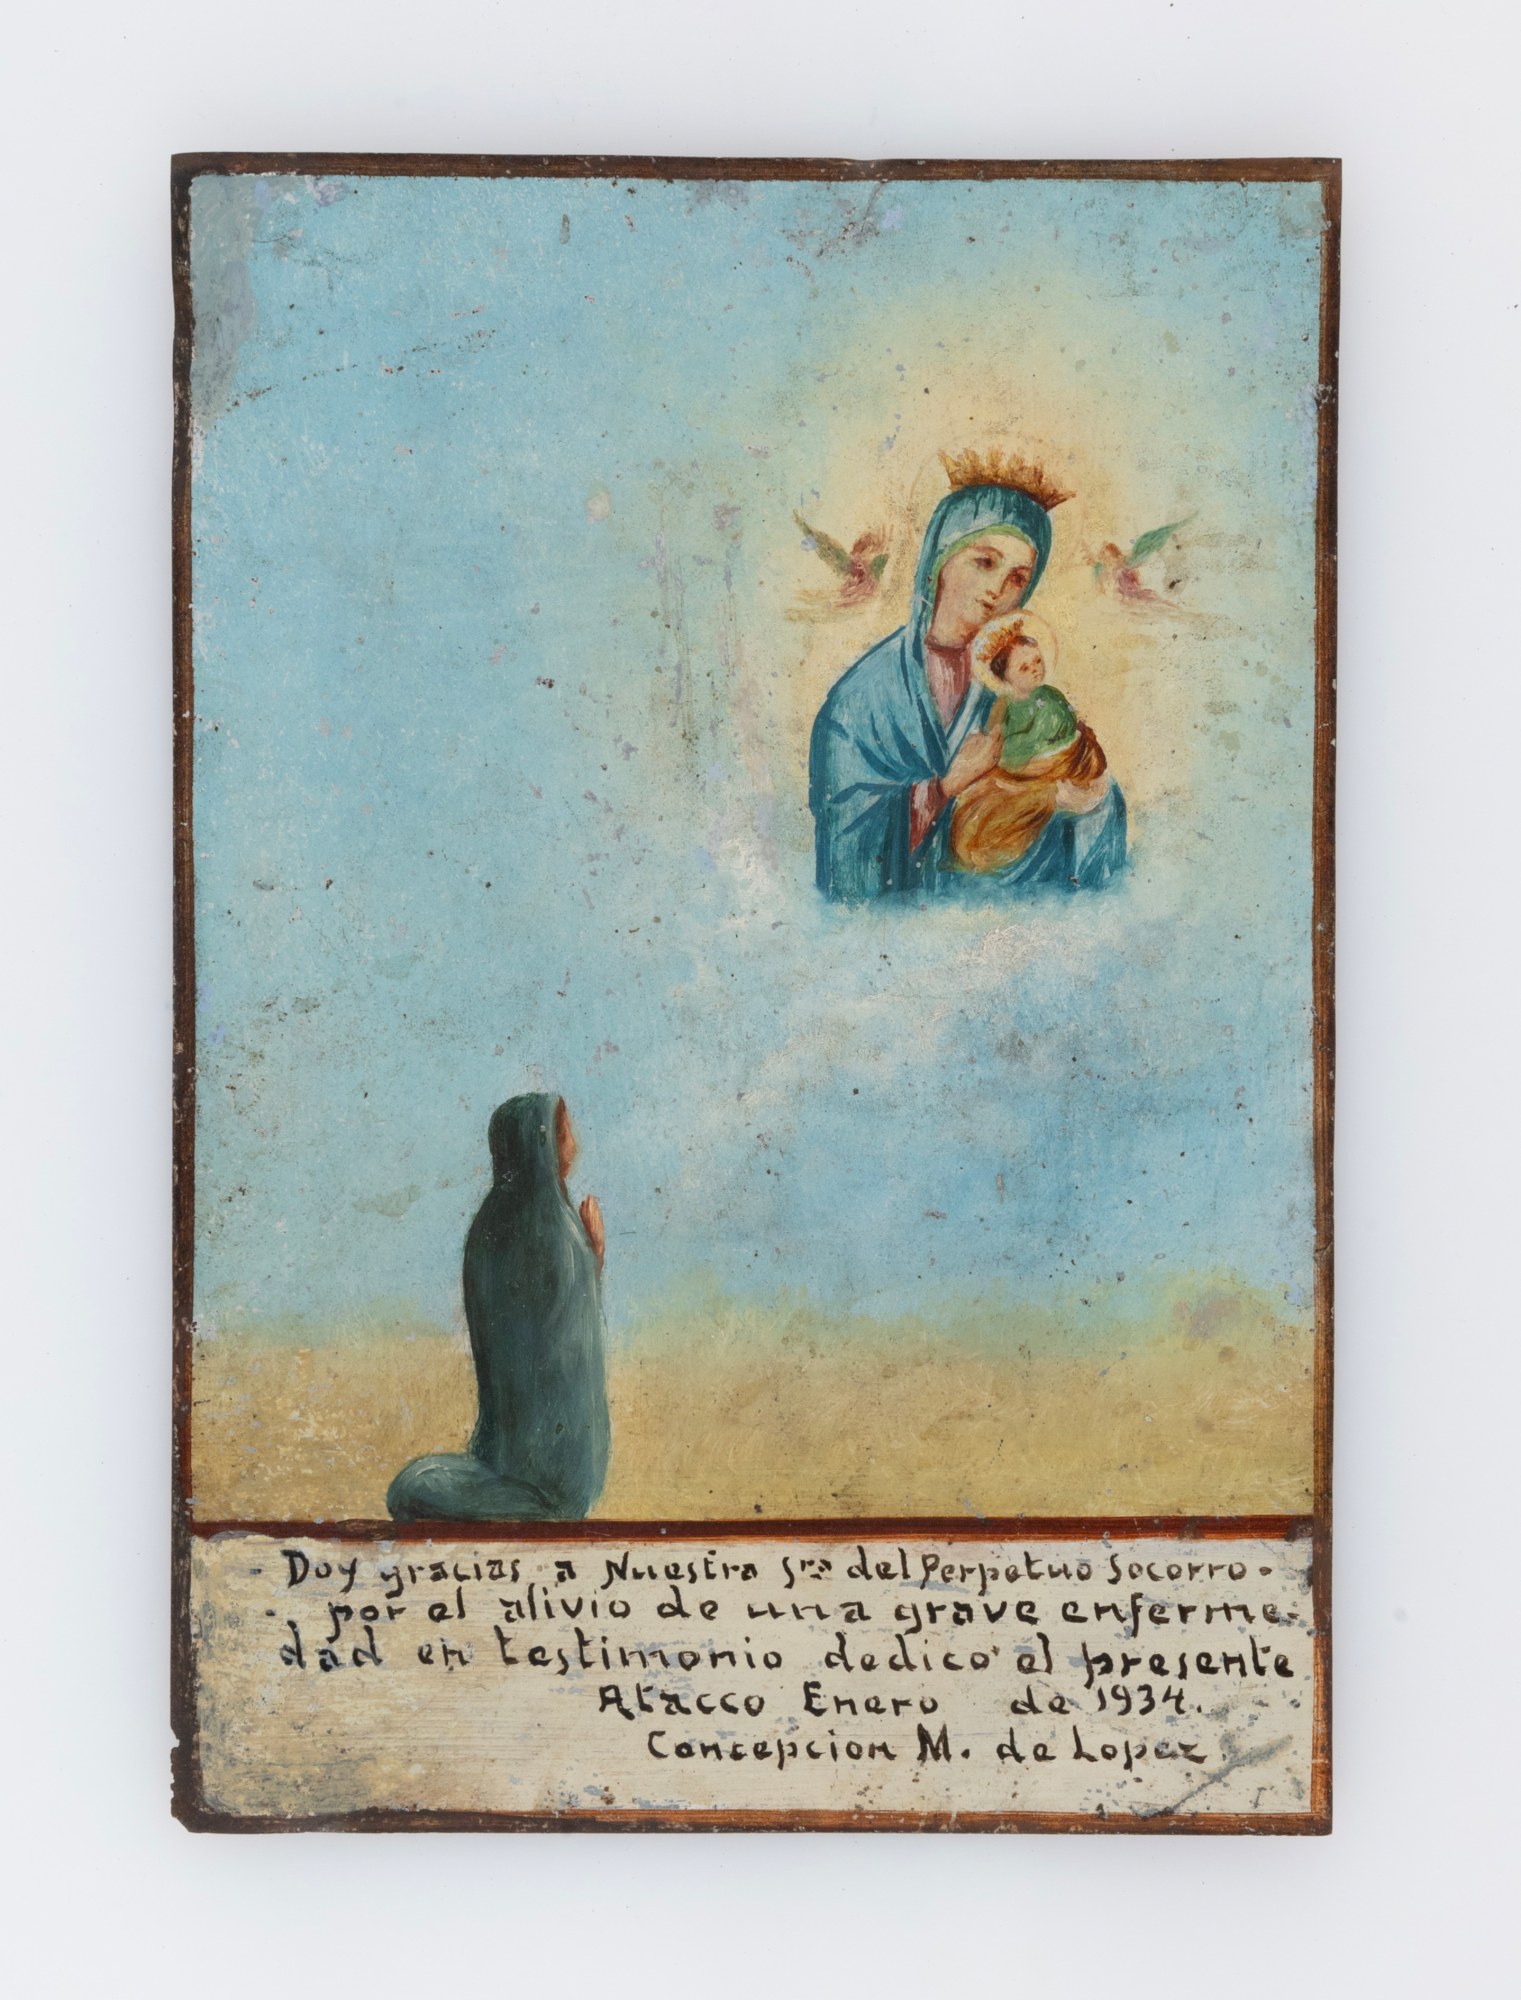 - Doy gracias a Nuestra Sra del Perpetuo Socorro -
- por el alivio de una grave enferme-
dad en testimonio dedico el presente
Atacco Enero de 1934.
Concepcion M. de Lopez.